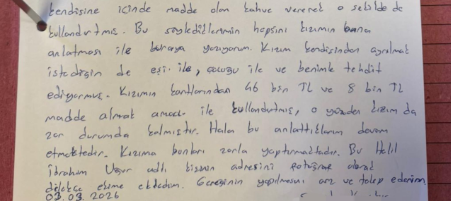 kendisine içinde madde olan kahve vererek o şekilde de
kullandırtmış. Bu söylediklerimin hepsini kızımın bana
anlatması ile buraya yazıyorum. Kızım kendisinden ayrılmak
istediğin de eşi ile, çocuğu ile ve benimle tehdit
ediyormuş. Kızımın kartlarından 46 bin TL ve 8 bin TL
madde almak amacı ile kullandırtmış, o yüzden kızım da
zor durumda kalmıştır. Halen bu anlattıklarım devam
etmektedir. Kızıma bunları zorla yaptırmaktadır. Bu Halil
İbrahim Uğur adlı kişinin adresini olarak
dilekçe ekime ekledim. Gereğinin yapılmasını arz ve talep ederim
03.03.2026